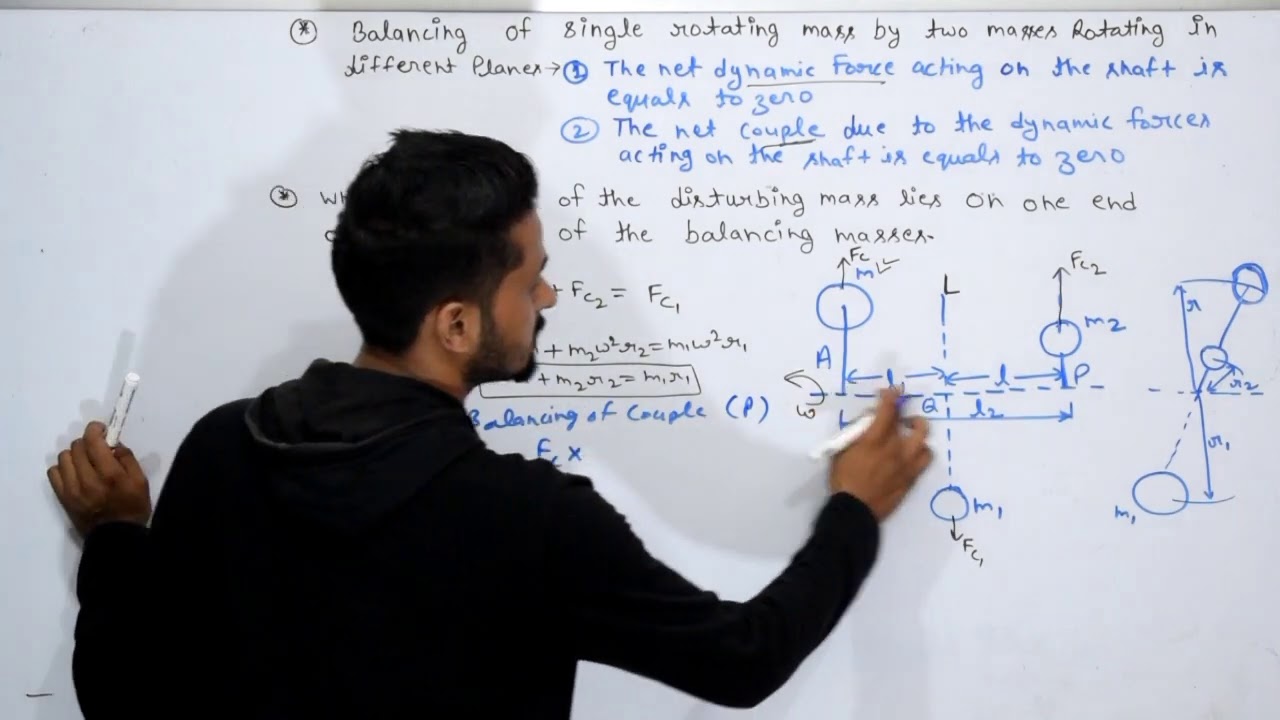 * Balancing of single rotating mass by two masses Rotating in
different Planes→ ① The net dynamic Force acting on the shaft is
equals to zero
② The net couple due to the dynamic forces
acting on the shaft is equals to zero
* of the disturbing mass lies on one end
of the balancing masses.
+ Fc2 = Fc1
+ m2ω²r2 = m1ω²r1
+ m2r2 = m1r1
Balancing of Couple (P)
Fc ×
Fc
m
L
Fc2
m2
A
l
P
ω
Q
l2
m1
Fc1
r
r2
r1
m1